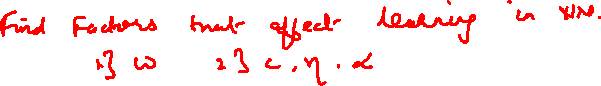 Find Factors that effect learning in NN.
1} w 2} c, η, α